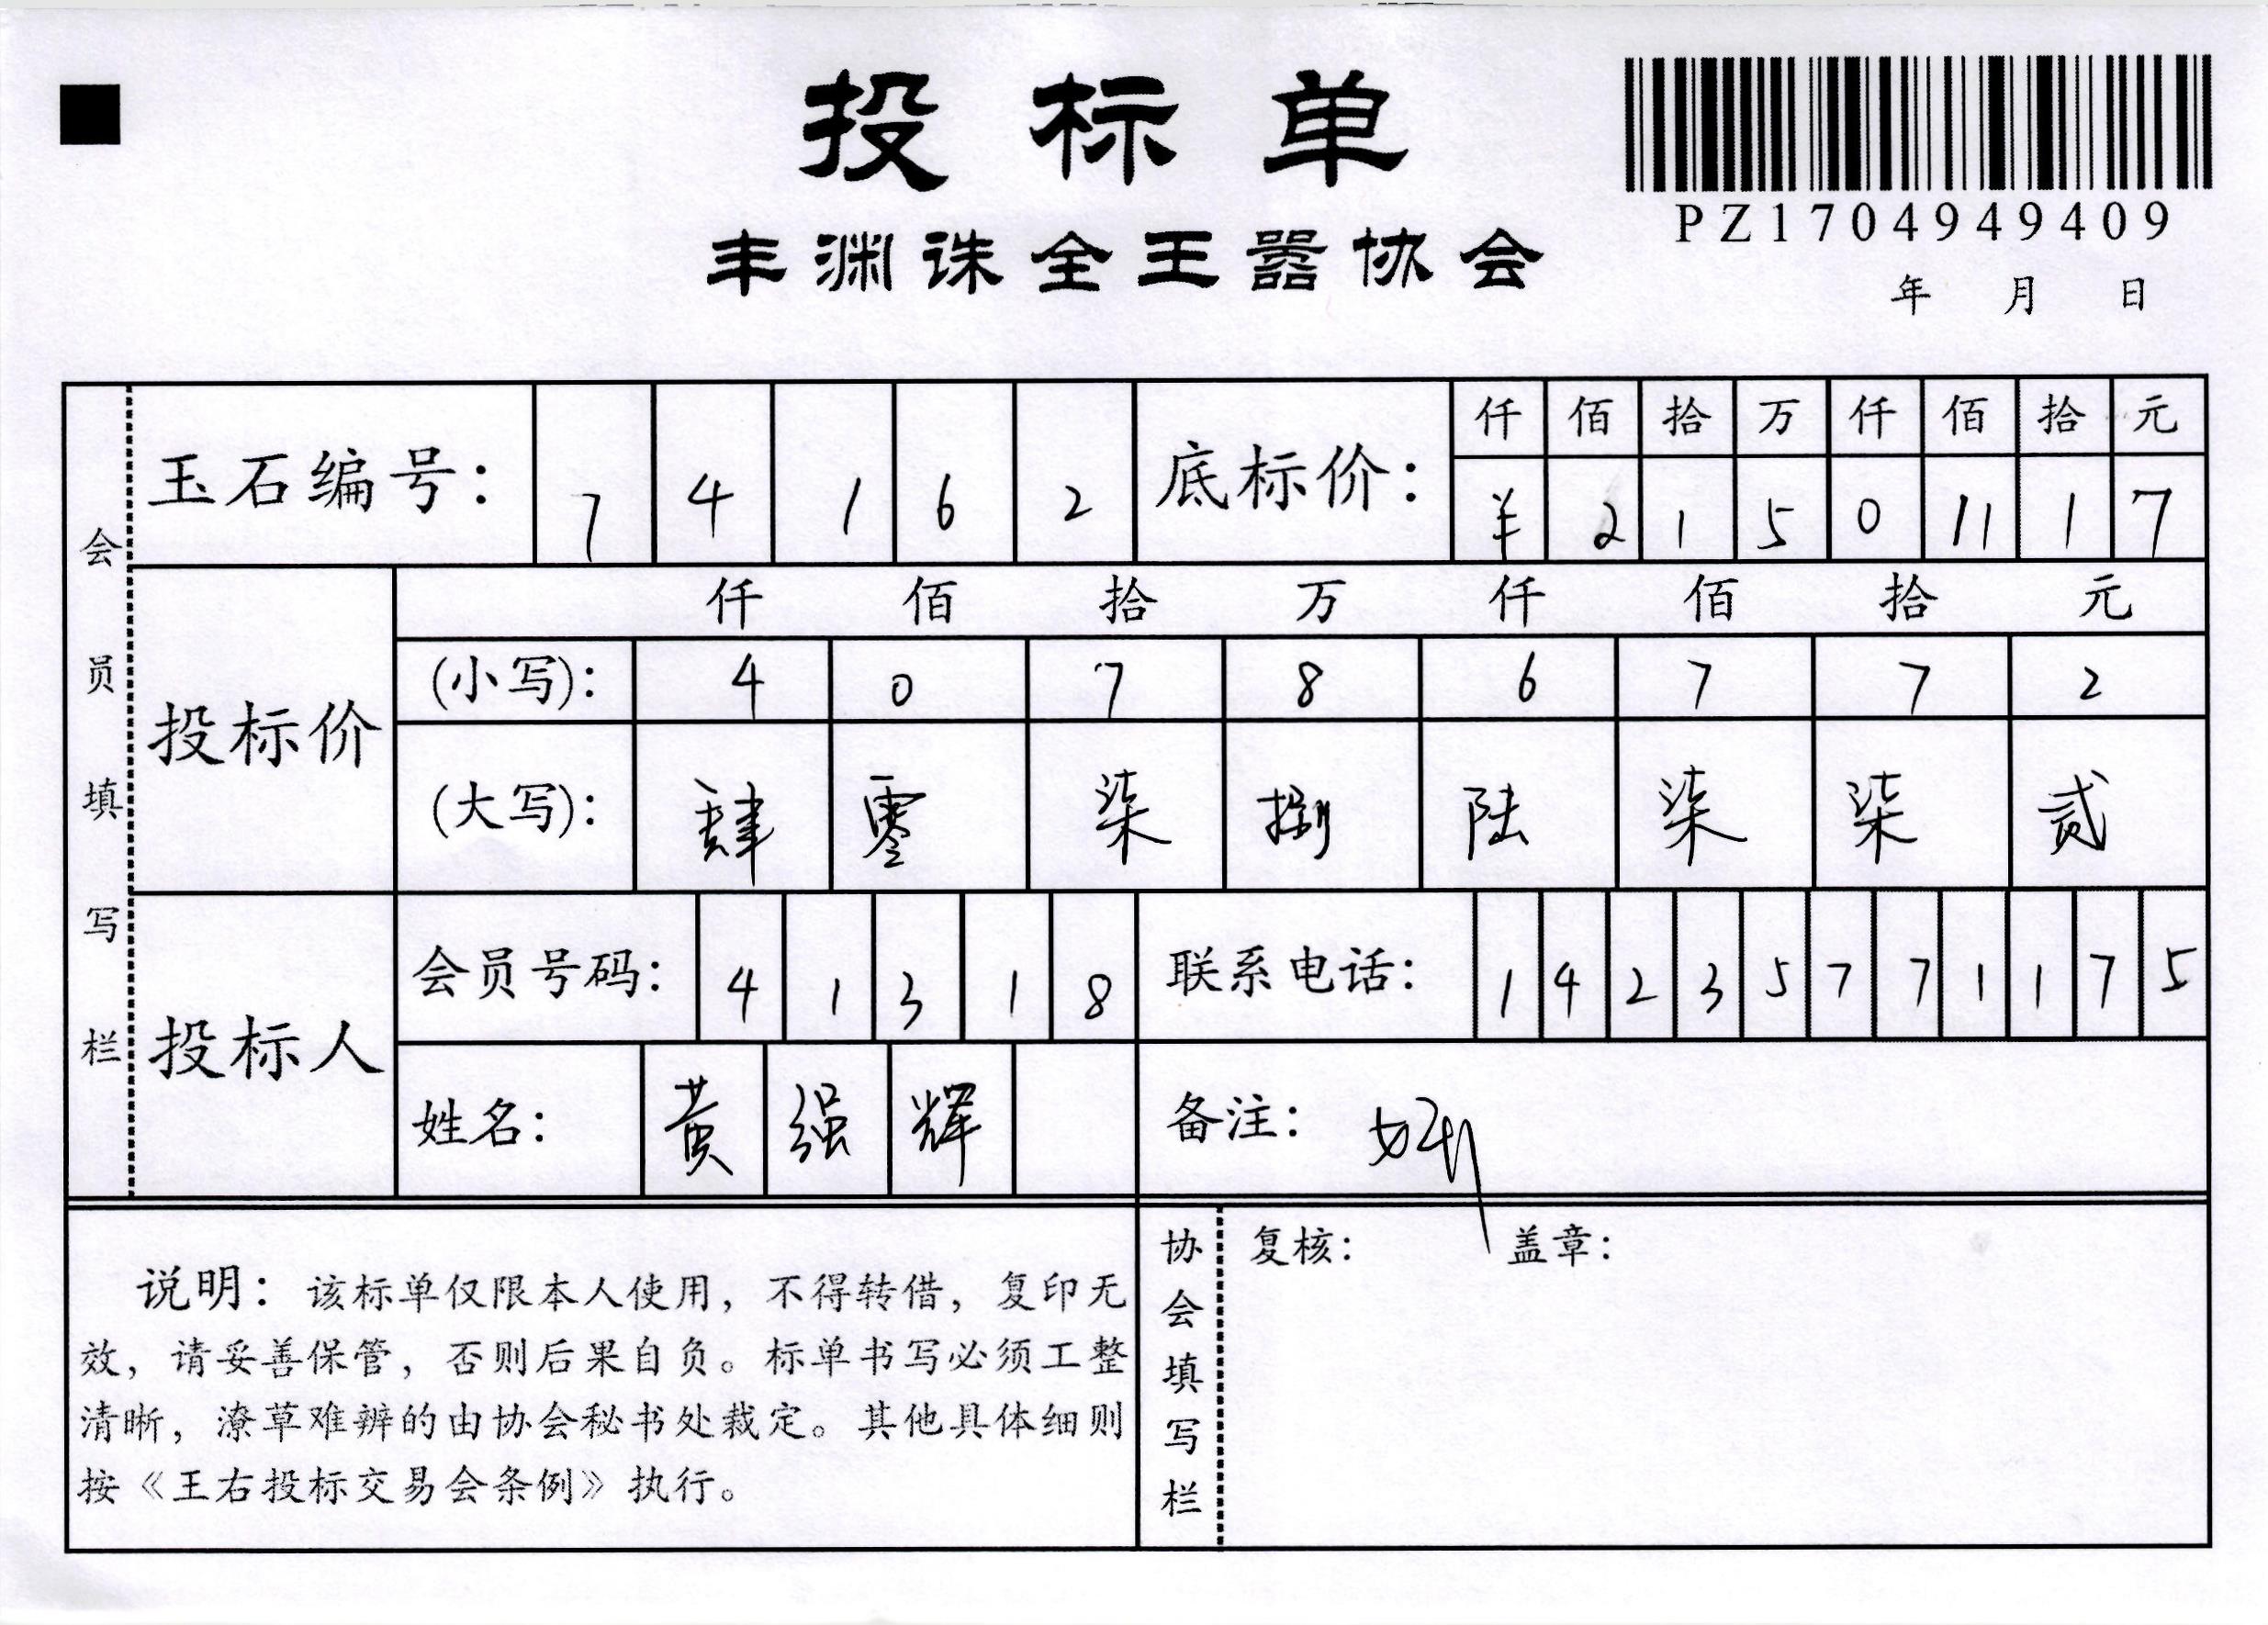 投标单
PZ1704949409
丰渊诛全王嚣协会
年 月 日
会员填写栏
玉石编号： 7 4 1 6 2
底标价： 仟 佰 拾 万 仟 佰 拾 元
¥ 2 1 5 0 11 1 7
投标价
仟 佰 拾 万 仟 佰 拾 元
(小写)： 4 0 7 8 6 7 7 2
(大写)： 肆 零 柒 捌 陆 柒 柒 贰
投标人
会员号码： 4 1 3 1 8
联系电话： 1 4 2 3 5 7 7 1 1 7 5
姓名： 黄 强 辉
备注：
说明：该标单仅限本人使用，不得转借，复印无
效，请妥善保管，否则后果自负。标单书写必须工整
清晰，潦草难辨的由协会秘书处裁定。其他具体细则
按《王右投标交易会条例》执行。
协会填写栏
复核： 盖章：